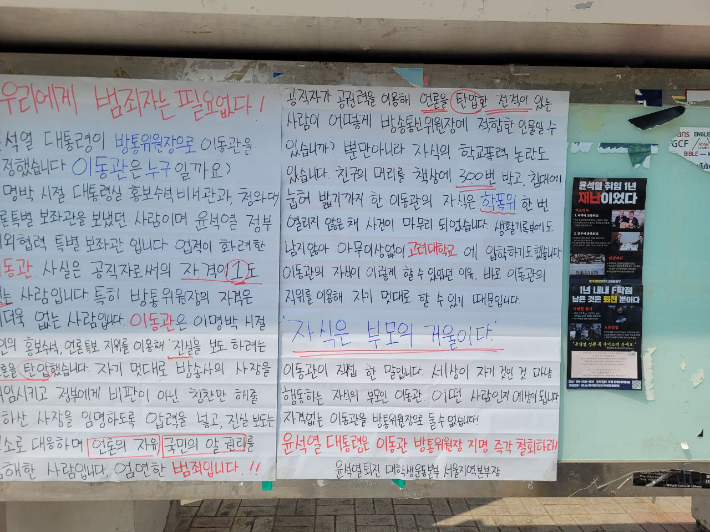 우리에게 범죄자는 필요없다!
석열 대통령이 방통위원장으로 이동관을
정했습니다 이동관은 누구일까요?
명박 시절 대통령실 홍보수석 비서관과, 청와대
론특별 보좌관을 보냈던 사람이며 윤석열 정부
외협력 특별 보좌관입니다 업적이 화려한
동관 사실은 공직자로써의 자격이 1도
는 사람입니다 특히 방통위원장의 자격은
더욱 없는 사람입니다 이동관은 이명박 시절
의 홍보수석, 언론특보 지위를 이용해 '진실을 보도 하려는
론을 탄압했습니다. 자기 멋대로 방송사의 사장을
임시키고 정부에게 비판이 아닌 칭찬만 해줄
하산 사장을 임명하도록 압력을 넣고, 진실 보도는
소로 대응하며 언론의 자유 국민의 알 권리를
해한 사람입니다. 엄연한 범죄입니다.!!
공직자가 공권력을 이용해 언론을 탄압한 전적이 있는
사람이 어떻게 방송통신위원장에 적합한 인물일 수
있습니까? 뿐만아니라 자식의 학교폭력 논란도
있습니다. 친구의 머리를 책상에 300번 박고, 침대에
눕혀 밟기까지 한 이동관의 자식은 학폭위 한 번
열리지 않은 채 사건이 마무리 되었습니다. 생활기록부에도
남지않아 아무이상없이 고려대학교에 입학하기도했습니다
이동관의 자식이 이렇게 할 수 있었던 이유, 바로 이동관의
지위를 이용해 자기 멋대로 할 수 있기 때문입니다.
'자식은 부모의 거울이다.'
이동관이 직접 한 말입니다. 세상이 자기 것인 것 마냥
행동하는 자식의 부모인 이동관. 어떤 사람인지 예상이 됩니다
자격없는 이동관을 방통위원장으로 둘 수 없습니다!
윤석열 대통령은 이동관 방통위원장 지명 즉각 철회하라!
윤석열퇴진 대학생운동본부 서울지역본부장
윤석열 취임 1년
재난이었다
1년 내내 F학점
남은 것은 퇴진 뿐이다
ENGLISH
GCF
BIBLE